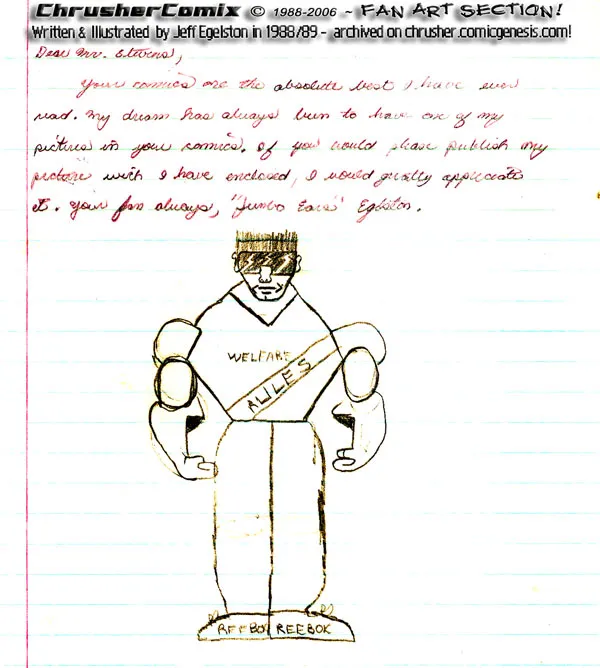 ChrusherComix © 1988-2006 ~ FAN ART SECTION!
Written & Illustrated by Jeff Egelston in 1988/89 - archived on chrusher.comicgenesis.com!
Dear Mr. Stevens,
Your comics are the absolute best I have ever
read. My dream has always been to have one of my
pictures in your comics. If you would please publish my
picture wich I have enclosed, I would greatly appreciate
it. Your fan always, "Jumbo Ears" Egelston.
WELFARE
RULES
REEBOK REEBOK